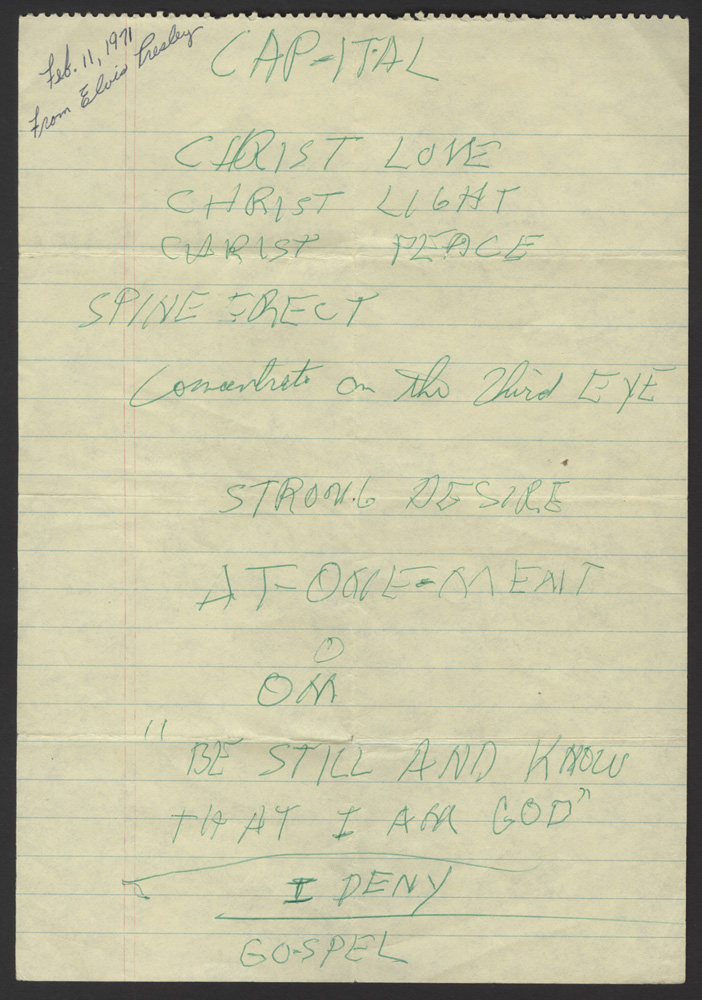 Feb. 11, 1971
From Elvis Presley
CAP-ITAL
CHRIST LOVE
CHRIST LIGHT
CHRIST PEACE
SPINE ERECT
Concentrate on the Third EYE
STRONG DESIRE
AT-ONE-MENT
O
OM
"BE STILL AND KNOW
THAT I AM GOD"
I DENY
GO-SPEL